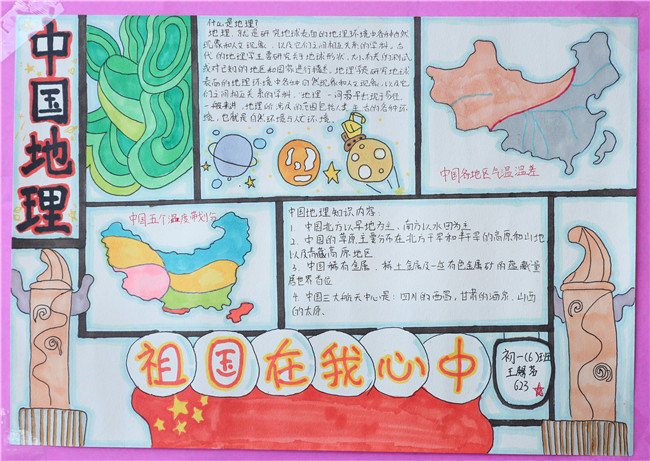 中国地理
什么是地理?
地理,就是研究地球表面的地理环境中各种自然
现象和人文现象,以及它们之间相互关系的学科,古
代的地理学主要研究关于地球形状、
的地区和国家进行描述、地理学就是研究地球
表面的地理环境中各种自然现象和人文现象,以及它
们之间相互关系的学科,地理一词最早出现于易经
一般来讲,地理所涉及的范围包括人类生存的各种环
境,也就是自然环境与人文环境。
中国各地区气温温差
中国五个温度带划分
中国地理知识内容:
1. 中国北方以旱地为主,南方以水田为主
2. 中国的草原主要分布在北方干旱和半干旱的高原和山地
以及高藏高原地区
3. 中国稀有金属、稀土金属及一些有色金属矿的蕴藏量
居世界首位
4. 中国三大航天中心是:四川的西昌,甘肃的酒泉、山西
的太原。
祖国在我心中
初一(6)班
王
623